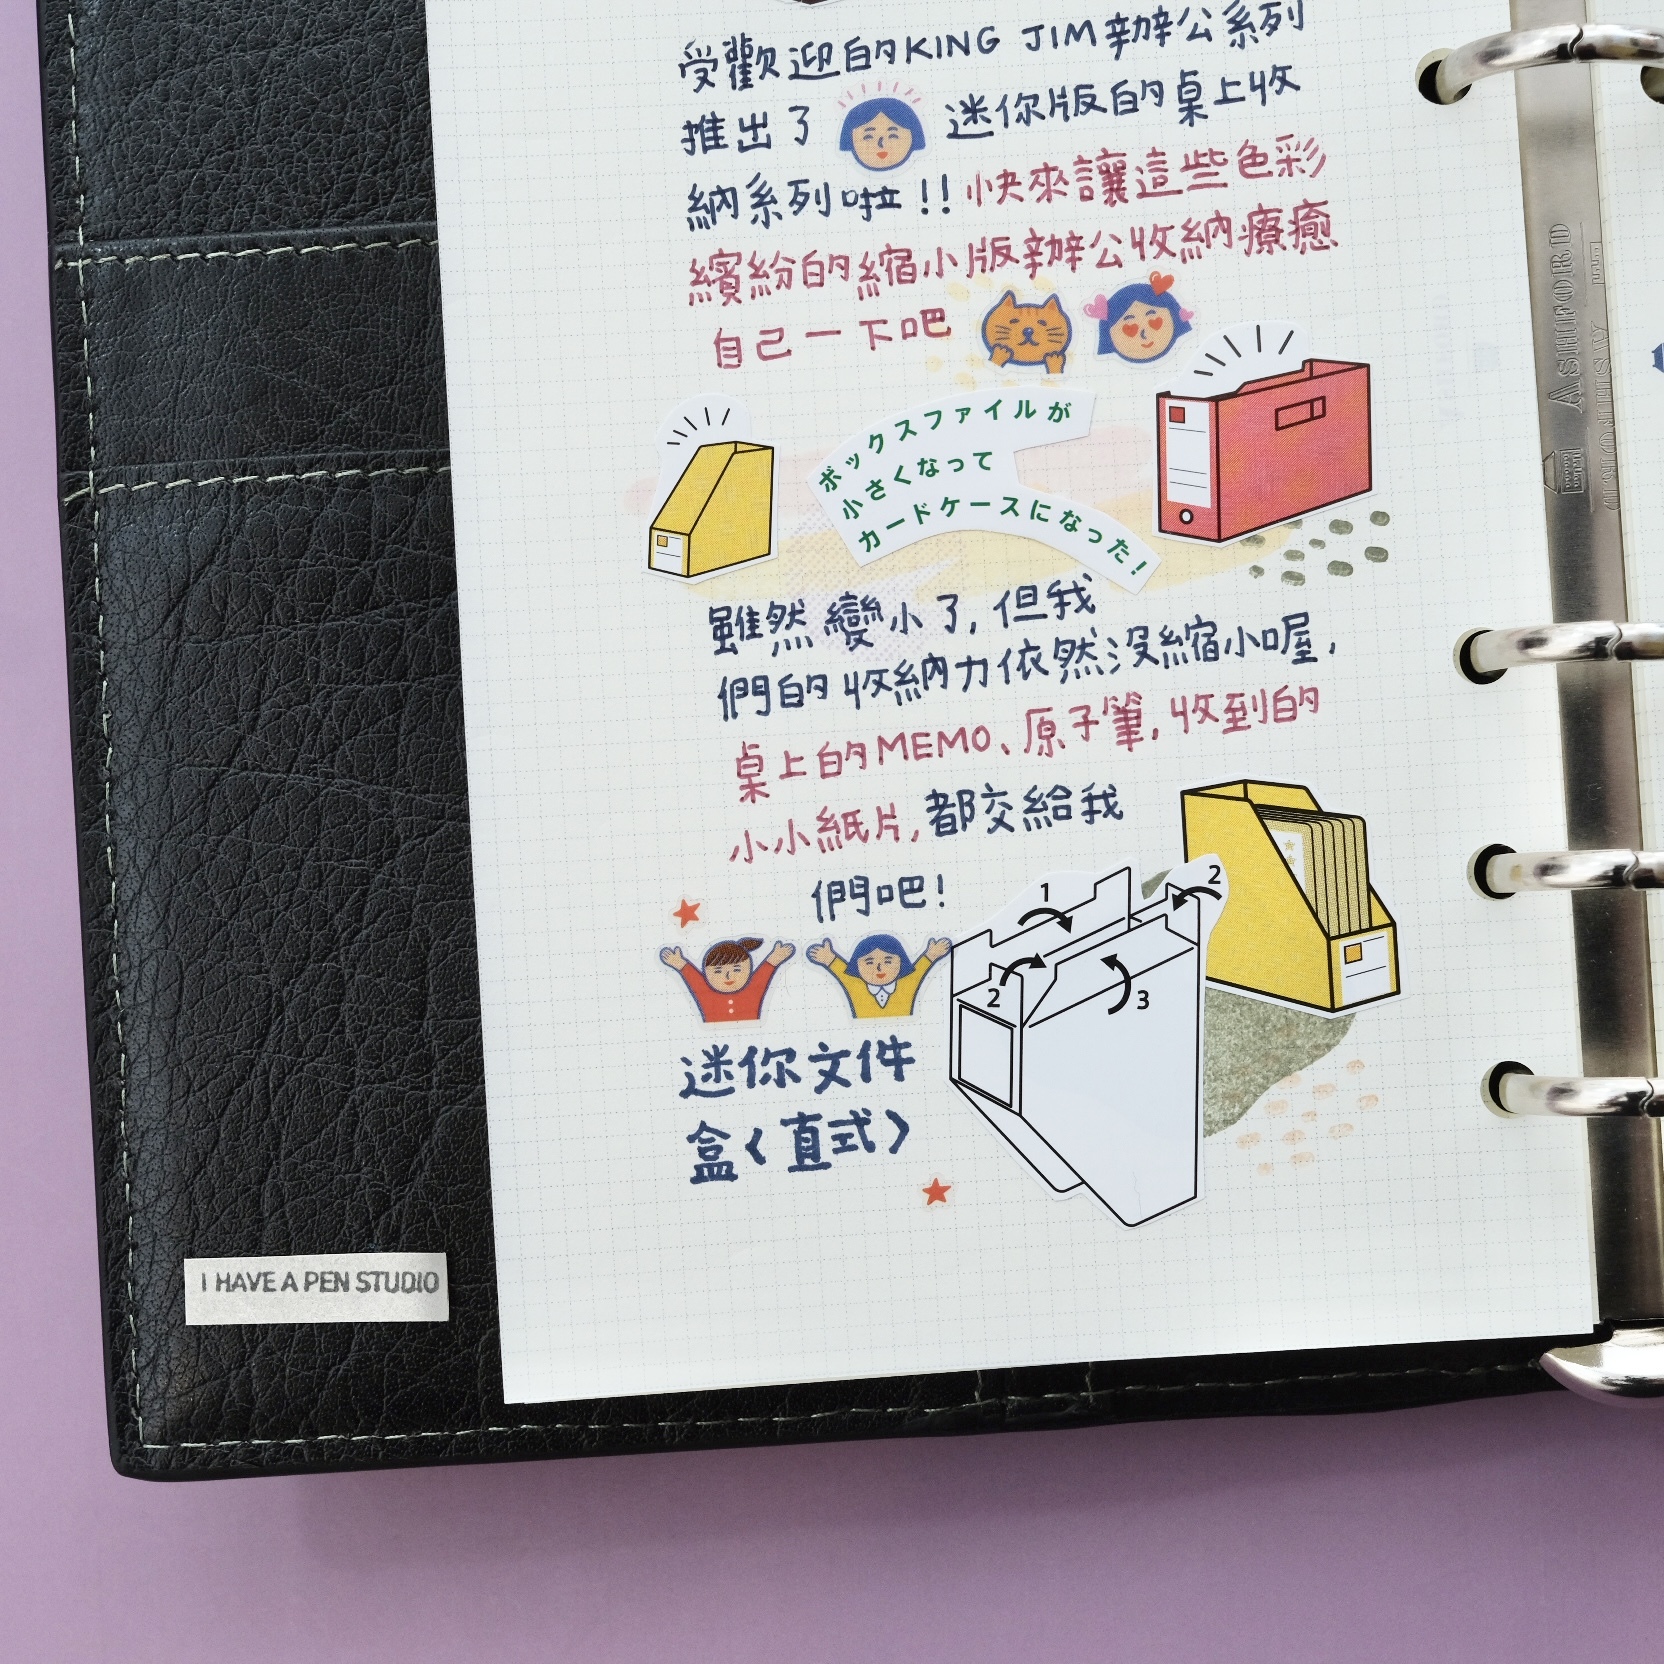 受歡迎的KING JIM辦公系列
推出了 迷你版的桌上收
納系列啦!!快來讓這些色彩
繽紛的縮小版辦公收納療癒
自己一下吧
ボックスファイルが
小さくなって
カードケースになった!
雖然變小了,但我
們的收納力依然沒縮小喔,
桌上的MEMO、原子筆,收到的
小小紙片,都交給我
們吧!
1
2
2
3
迷你文件
盒〈直式〉
I HAVE A PEN STUDIO
ASHFORD
ASHFORD